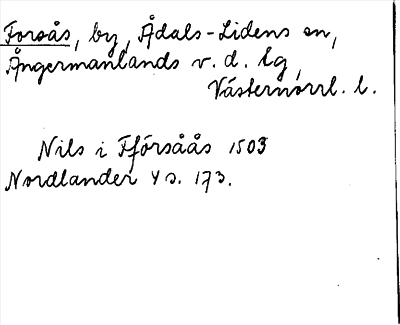 Forsås, by, Ådals-Lidens sn,
Ångermanlands v. d. lg,
Västernorrl. l.
Nils i Fförsåås 1503
Nordlander 4 s. 173.